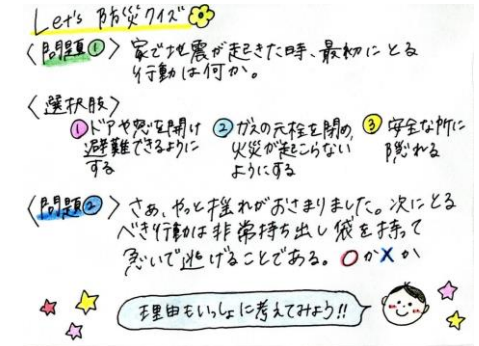 Let's 防災クイズ
〈問題①〉 家で地震が起きた時、最初にとる
行動は何か。
〈選択肢〉
① ドアや窓を開け
避難できるように
する
② ガスの元栓を閉め、
火災が起こらない
ようにする
③ 安全な所に
隠れる
〈問題②〉 さぁ、やっと揺れがおさまりました。次にとる
べき行動は非常持ち出し袋を持って
急いで逃げることである。 ○か×か
理由もいっしょに考えてみよう!!